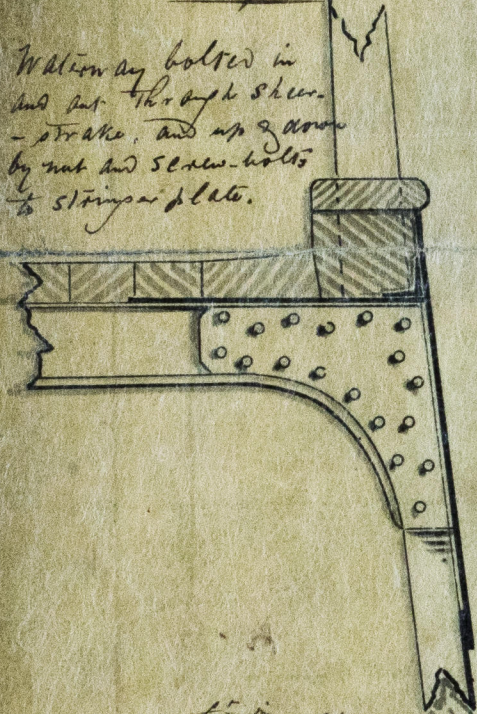 Waterway bolted in
and out through sheer-
- strake, and up & down
by nut and screw-bolts
to stringer plate.